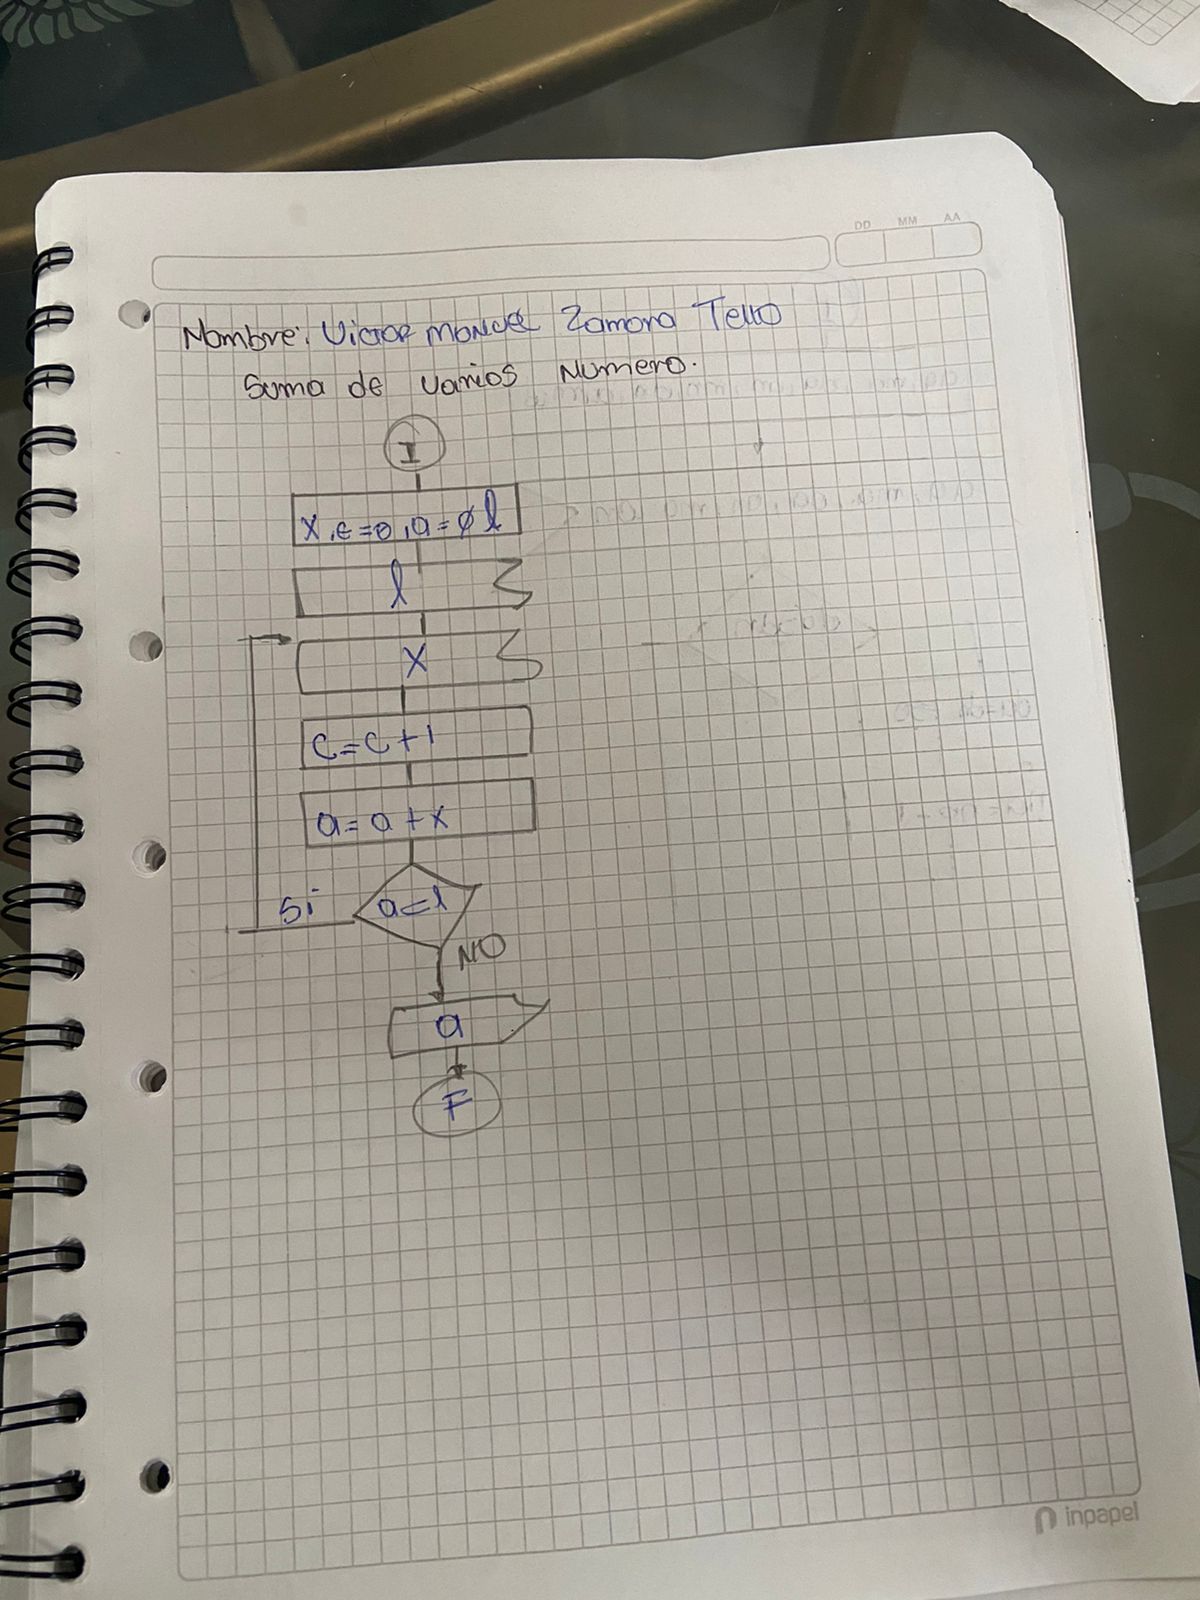 DD MM AA
Nombre: Victor Manuel Zamora Tello
Suma de varios Numero.
I
x, c=0, a=ø l
l
x
c=c+1
a=a+x
Si a<l
NO
a
F
inpapel